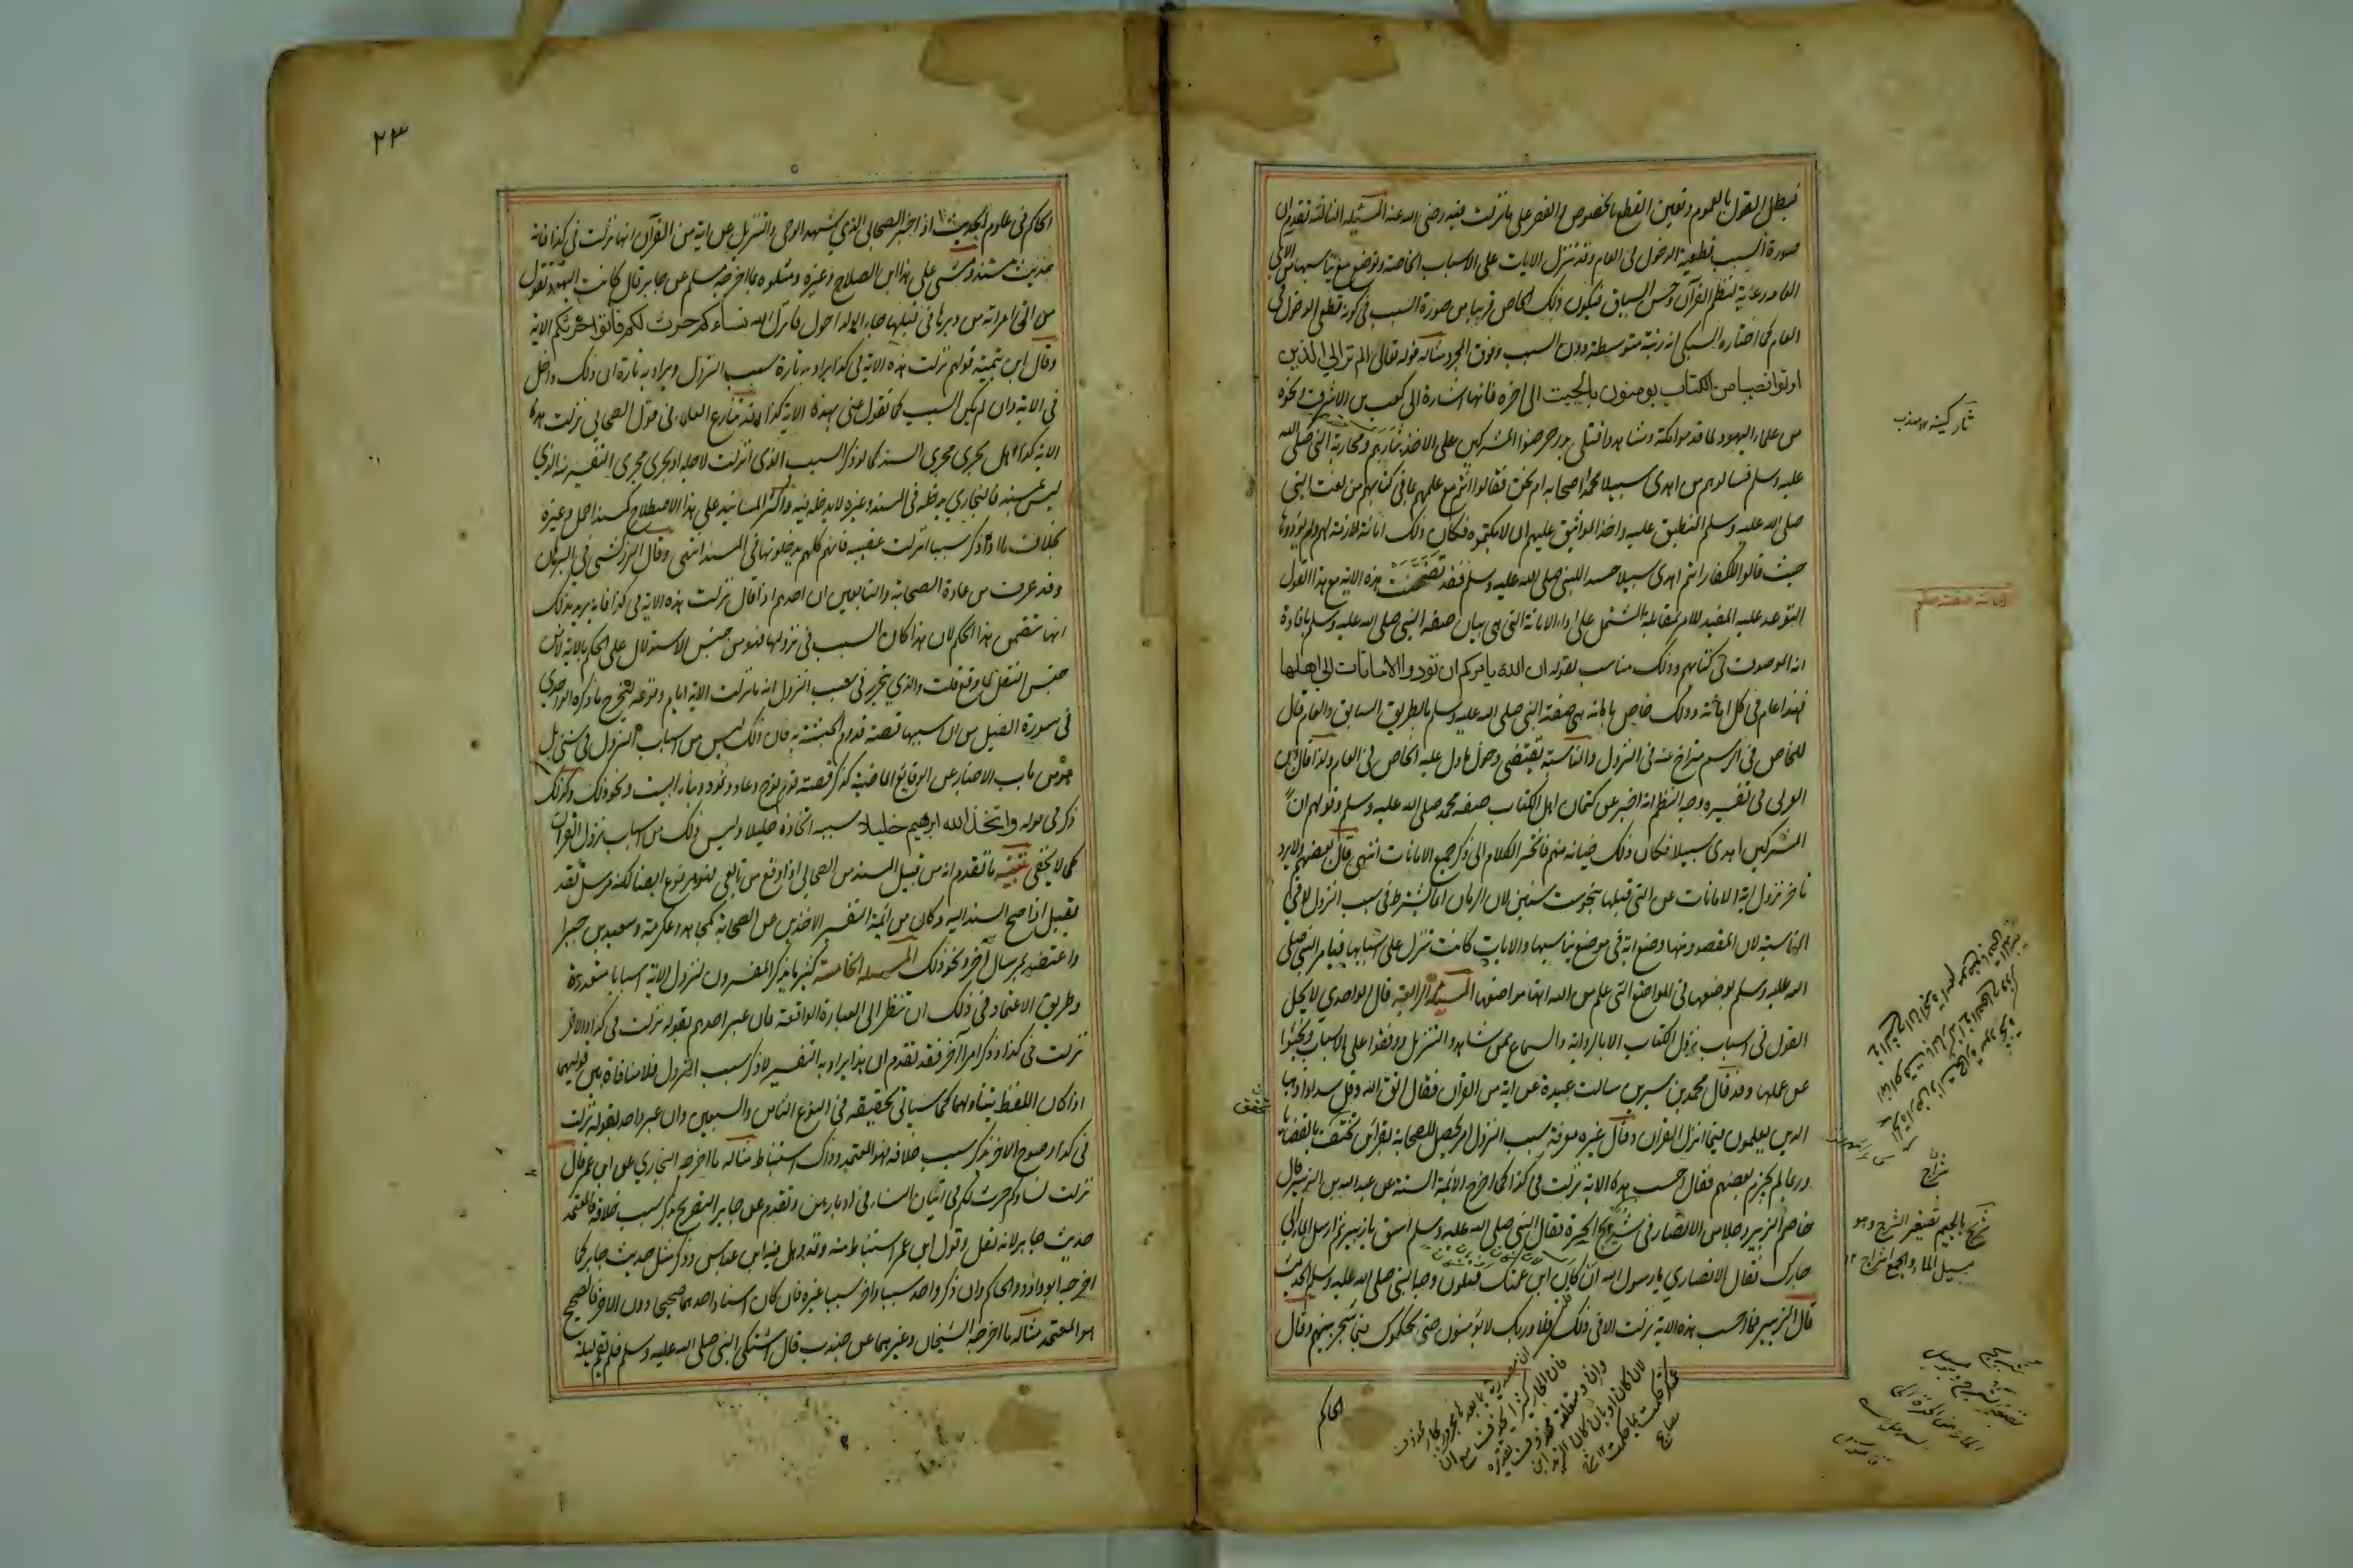 فبطل القول بالعموم وتعين القطع بالخصوص والقصر على ما نزلت فيه رضى الله عنه المسئلة الثالثة تقدم ان
صورة السبب قطعية الدخول فى العام وقد تنزل الايات على الاسباب الخاصة وتوضع مع ما يناسبها من الآي
العامة رعاية لنظم القرآن وحسن السياق فيكون ذلك الخاص قريبا من صورة السبب فى كونه قطعى الدخول فى
العام كما اختاره السبكي انه رتبة متوسطة دون السبب وفوق المجرد مثاله قوله تعالى الم تر الى الذين
اوتوا نصيبا من الكتاب يومنون بالجبت الى اخره فانها اشارة الى كعب بن الاشرف ونحوه
من علماء اليهود لما قدموا مكة وشاهدوا قتلى بدر حرضوا المشركين على الاخذ بثارهم ومحاربة النبى صلى الله
عليه وسلم فسالوهم من اهدى سبيلا محمد واصحابه ام نحن فقالوا انتم مع علمهم بما فى كتابهم من نعت النبى
صلى الله عليه وسلم المنطبق عليه واخذ المواثيق عليهم ان لا يكتموه فكان ذلك امانة لازمة لهم ولم يؤدوها
حيث قالوا للكفار انتم اهدى سبيلا حسدا للنبى صلى الله عليه وسلم فقد تضمنت هذه الاية مع هذا القول
التوعد عليه المفيد للامر بمقابله المشتمل على اداء الامانة التى هى بيان صفة النبى صلى الله عليه وسلم بافادة
انه الموصوف فى كتابهم وذلك مناسب لقوله ان الله يامركم ان تودوا الامانات الى اهلها
فهذا عام فى كل امانة وذلك خاص بامانة هى صفة النبى صلى الله عليه وسلم بالطريق السابق والعام تال
للخاص فى الرسم متراخ عنه فى النزول والمناسبة تقتضى دخول ما دل عليه الخاص فى العام ولذا قال ابن
العربى فى تفسيره وجه النظم انه اخبر عن كتمان اهل الكتاب صفة محمد صلى الله عليه وسلم وقولهم ان
المشركين اهدى سبيلا فكان ذلك خيانة منهم فانجر الكلام الى ذكر جميع الامانات انتهى قال بعضهم ولا يرد
تاخر نزول اية الامانات عن التى قبلها بنحو ست سنين لان الزمان انما يشترط فى سبب النزول لا فى
المناسبة لان المقصود منها وضع اية فى موضع يناسبها والايات كانت تنزل على اسبابها فيامر النبى صلى
الله عليه وسلم بوضعها فى المواضع التى علم من الله انها مواضعها المسئلة الرابعة قال الواحدي لا يحل
القول فى اسباب نزول الكتاب الا بالرواية والسماع ممن شاهدوا التنزيل ووقفوا على الاسباب وبحثوا
عن علمها وقد قال محمد بن سيرين سالت عبيدة عن اية من القران فقال اتق الله وقل سدادا ذهب
الذين يعلمون فيما انزل القران وقال غيره معرفة سبب النزول امر يحصل للصحابة بقرائن تحتف بالقضايا
وربما لم يجزم بعضهم فقال احسب هذه الاية نزلت فى كذا كما اخرج الائمة الستة عن عبد الله بن الزبير قال
خاصم الزبير رجلا من الانصار فى شريج الحرة فقال النبى صلى الله عليه وسلم اسق يا زبير ثم ارسل الماء الى
جارك فقال الانصاري يا رسول الله ان كان ابن عمتك فتلون وجه النبى صلى الله عليه وسلم الحديث
قال الزبير فما احسب هذه الاية نزلت الا فى ذلك فلا وربك لا يؤمنون حتى يحكموك فيما شجر بينهم وقال
ثار كينه
شراج
شريج بالجيم تصغير الشرج وهو
مسيل الماء والجمع شراج ١٢
الحاكم
٢٣
الحاكم فى علوم الحديث اذا اخبر الصحابى الذي شهد الوحى والتنزيل عن اية من القرآن انها نزلت فى كذا فانه
حديث مسند ومشى على هذا ابن الصلاح وغيره ومثلوه بما اخرجه مسلم عن جابر قال كانت اليهود تقول
من اتى امراته من دبرها فى قبلها جاء الولد احول فانزل الله نساءكم حرث لكم فاتوا حرثكم الاية
وقال ابن تيمية قولهم نزلت هذه الاية فى كذا يراد به تارة سبب النزول ويراد به تارة ان ذلك داخل
فى الاية وان لم يكن السبب كما تقول عنى بهذه الاية كذا وقد تنازع العلماء فى قول الصحابى نزلت هذه
الاية كذا هل يجرى مجرى المسند كما لو ذكر السبب الذى انزلت لاجله او يجرى مجرى التفسير منه الذي
ليس بمسند فالبخاري يدخله فى المسند وغيره لا يدخله فيه واكثر المسانيد على هذا الاصطلاح كمسند احمد وغيره
بخلاف ما اذا ذكر سببا نزلت عقبه فانهم كلهم يدخلونها فى المسند انتهى وقال الزركشى فى البرهان
وقد عرف من عادة الصحابة والتابعين ان احدهم اذا قال نزلت هذه الاية فى كذا فانه يريد بذلك
انها تتضمن هذا الحكم لان هذا كان السبب فى نزولها فهو من جنس الاستدلال على الحكم بالاية لا من
جنس النقل لما وقع قلت والذي يتحرر فى سبب النزول انه ما نزلت الاية ايام وقوعه ليخرج ما ذكره الواحدي
فى سورة الفيل من ان سببها قصة قدوم الحبشة به فان ذلك ليس من اسباب النزول فى شئ بل
هو من باب الاخبار عن الوقايع الماضية كذكر قصة قوم نوح وعاد وثمود وبناء البيت ونحو ذلك وكذلك
ذكر فى قوله واتخذ الله ابرهيم خليلا سبب اتخاذه خليلا وليس ذلك من اسباب نزول القران
كما لا يخفى تنبيه ما تقدم انه من قبيل المسند من الصحابى اذا وقع من تابعى فهو مرفوع ايضا لكنه مرسل فقد
يقبل اذا صح السند اليه وكان من ائمة التفسير الاخذين عن الصحابة كمجاهد وعكرمة وسعيد بن جبير
واعتضد بمرسل آخر ونحو ذلك المسئلة الخامسة كثيرا ما يذكر المفسرون لنزول الاية اسبابا متعددة
وطريق الاعتماد فى ذلك ان تنظر الى العبارة الواقعة فان عبر احدهم بقوله نزلت فى كذا والاخر
نزلت فى كذا وذكر امرا آخر فقد تقدم ان هذا يراد به التفسير لا ذكر سبب النزول فلا منافاة بين قوليهما
اذا كان اللفظ يتناولهما كما سياتى تحقيقه فى النوع الثامن والسبعين وان عبر واحد بقوله نزلت
فى كذا وصرح الاخر بذكر سبب خلافه فهو المعتمد وذاك استنباط مثاله ما اخرجه البخاري عن ابن عمر قال
نزلت نساؤكم حرث لكم فى اتيان النساء فى ادبارهن وتقدم عن جابر التصريح بذكر سبب خلافه فالمعتمد
حديث جابر لانه نقل وقول ابن عمر استنباط منه وقد وهمه فيه ابن عباس وذكر مثل حديث جابر كما
اخرجه ابو داؤد والحاكم وان ذكر واحد سببا واخر سببا غيره فان كان اسناد احدهما صحيحا دون الاخر فالصحيح
هو المعتمد مثاله ما اخرجه الشيخان وغيرهما عن جندب قال اشتكى النبى صلى الله عليه وسلم فلم يقم ليلة